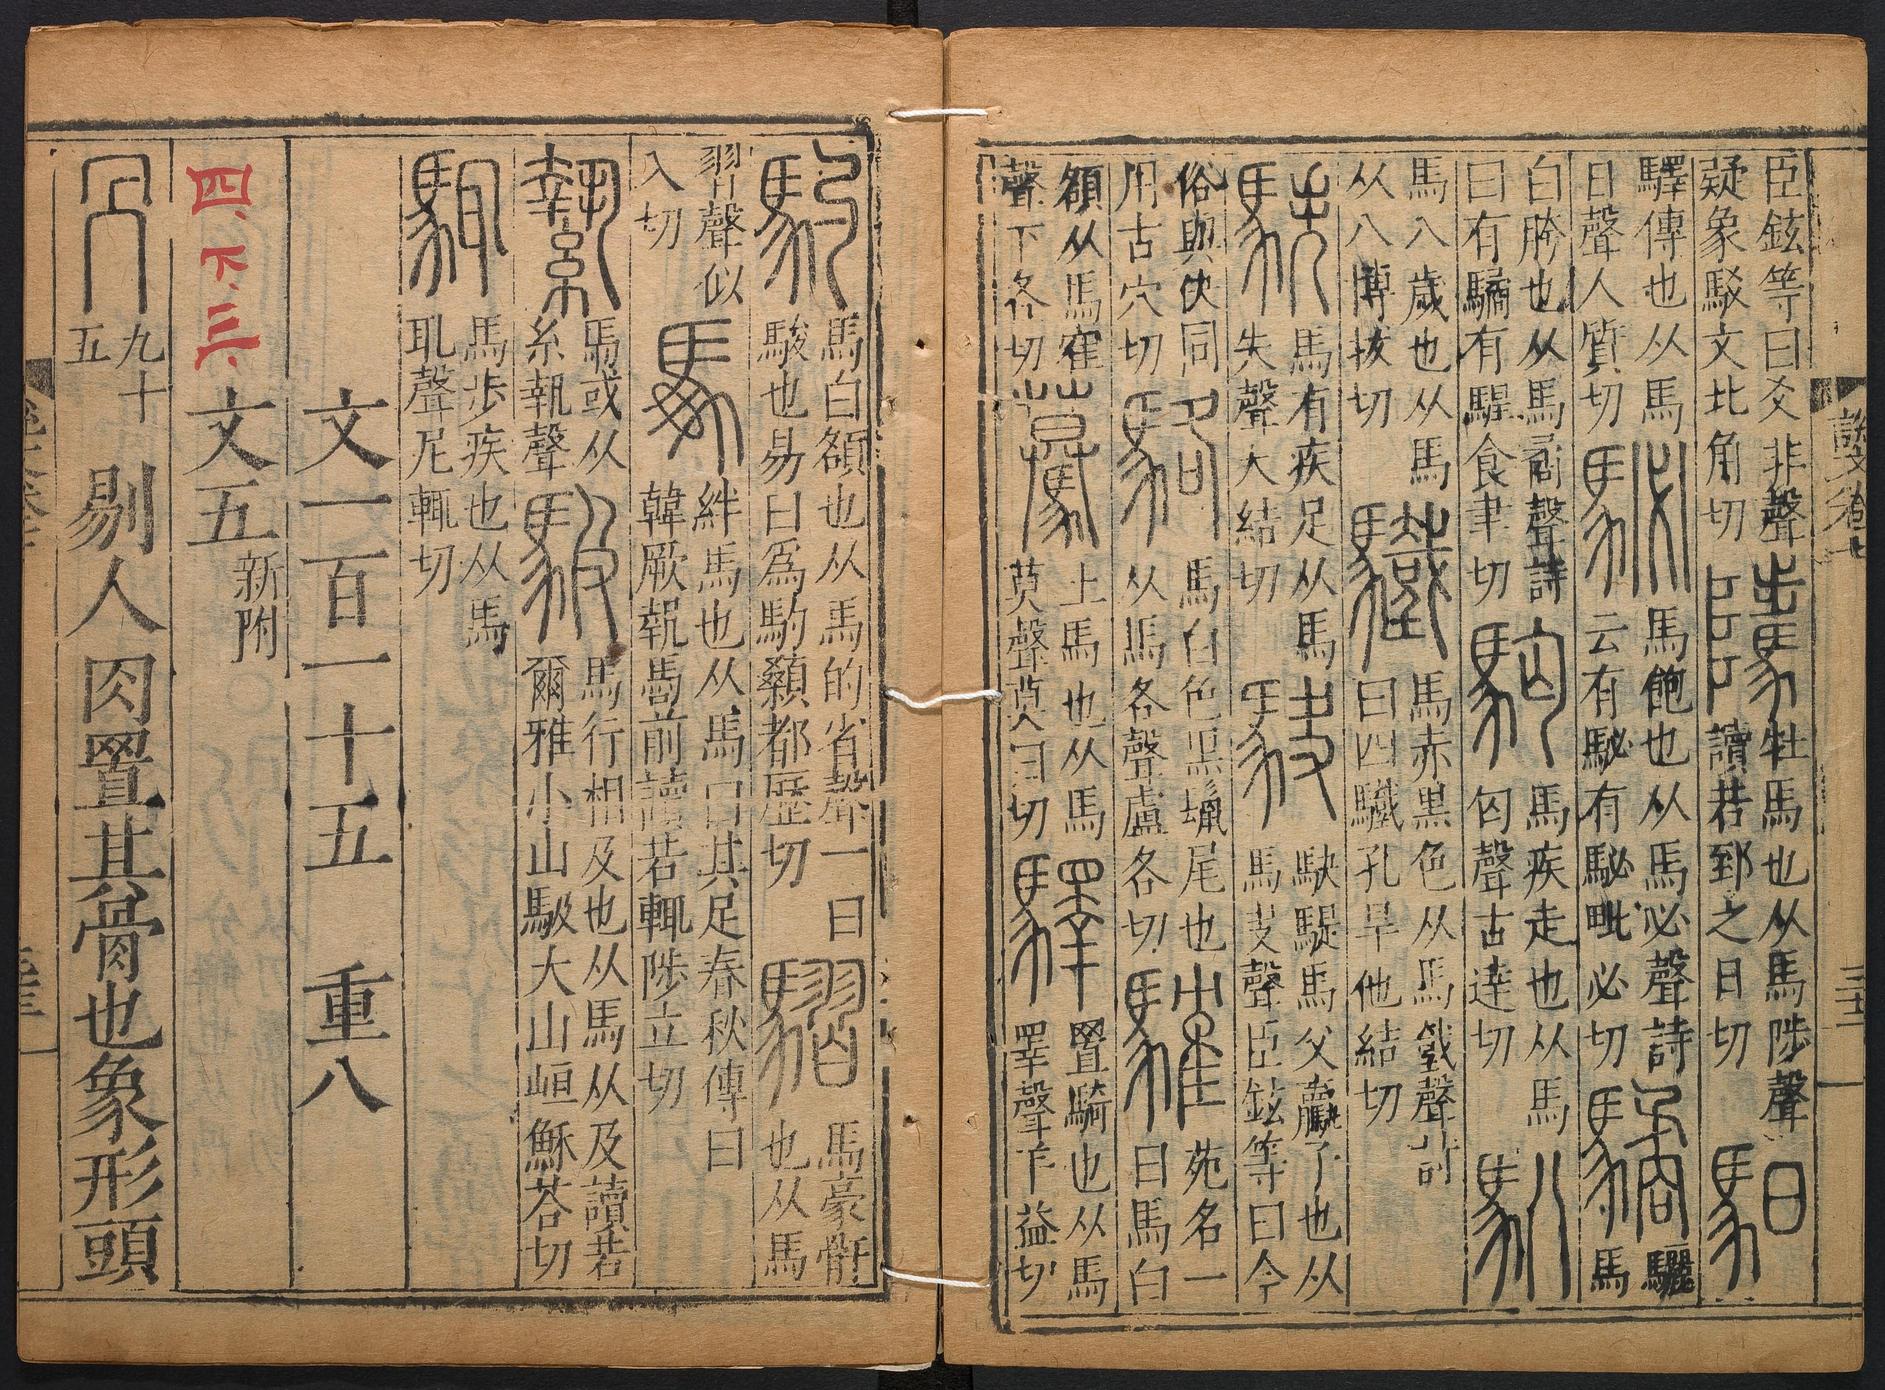 說文卷十
臣鉉等曰爻非聲
疑象駁文比角切
騭
牡馬也从馬陟聲
讀若郅之日切
馹
驛傳也从馬
日聲人質切
駜
馬飽也从馬必聲詩
云有駜有駜毗必切
驈
驪
馬
白胯也从馬矞聲詩
曰有驈有騜食聿切
馬疾走也从馬
匃聲古達切
馬八歲也从馬
从八博拔切
驖
馬赤黑色从馬𢧜聲詩
曰四驖孔阜他結切
馬有疾足从馬
失聲大結切
駃
駃騠馬父驘子也从
馬夬聲臣鉉等曰今
俗與快同
用古穴切
駱
馬白色黑鬣尾也
从馬各聲盧各切
苑名一
曰馬白
額从馬隺
聲下各切
驀
上馬也从馬
莫聲莫白切
驛
置騎也从馬
睪聲羊益切
馰
馬白額也从馬的省聲一曰
駿也易曰爲馰顙都歷切
騽
馬豪骭
也从馬
習聲似
入切
馽
絆馬也从馬口其足春秋傳曰
韓厥執馽前讀若輒陟立切
縶
馽或从
糸執聲
馺
馬行相及也从馬从及讀若
爾雅小山馺大山峘穌荅切
馬步疾也从馬
耴聲尼輒切
文一百一十五 重八
四、下、三、
文五新附
冎
九十
五
剔人肉置其骨也象形頭